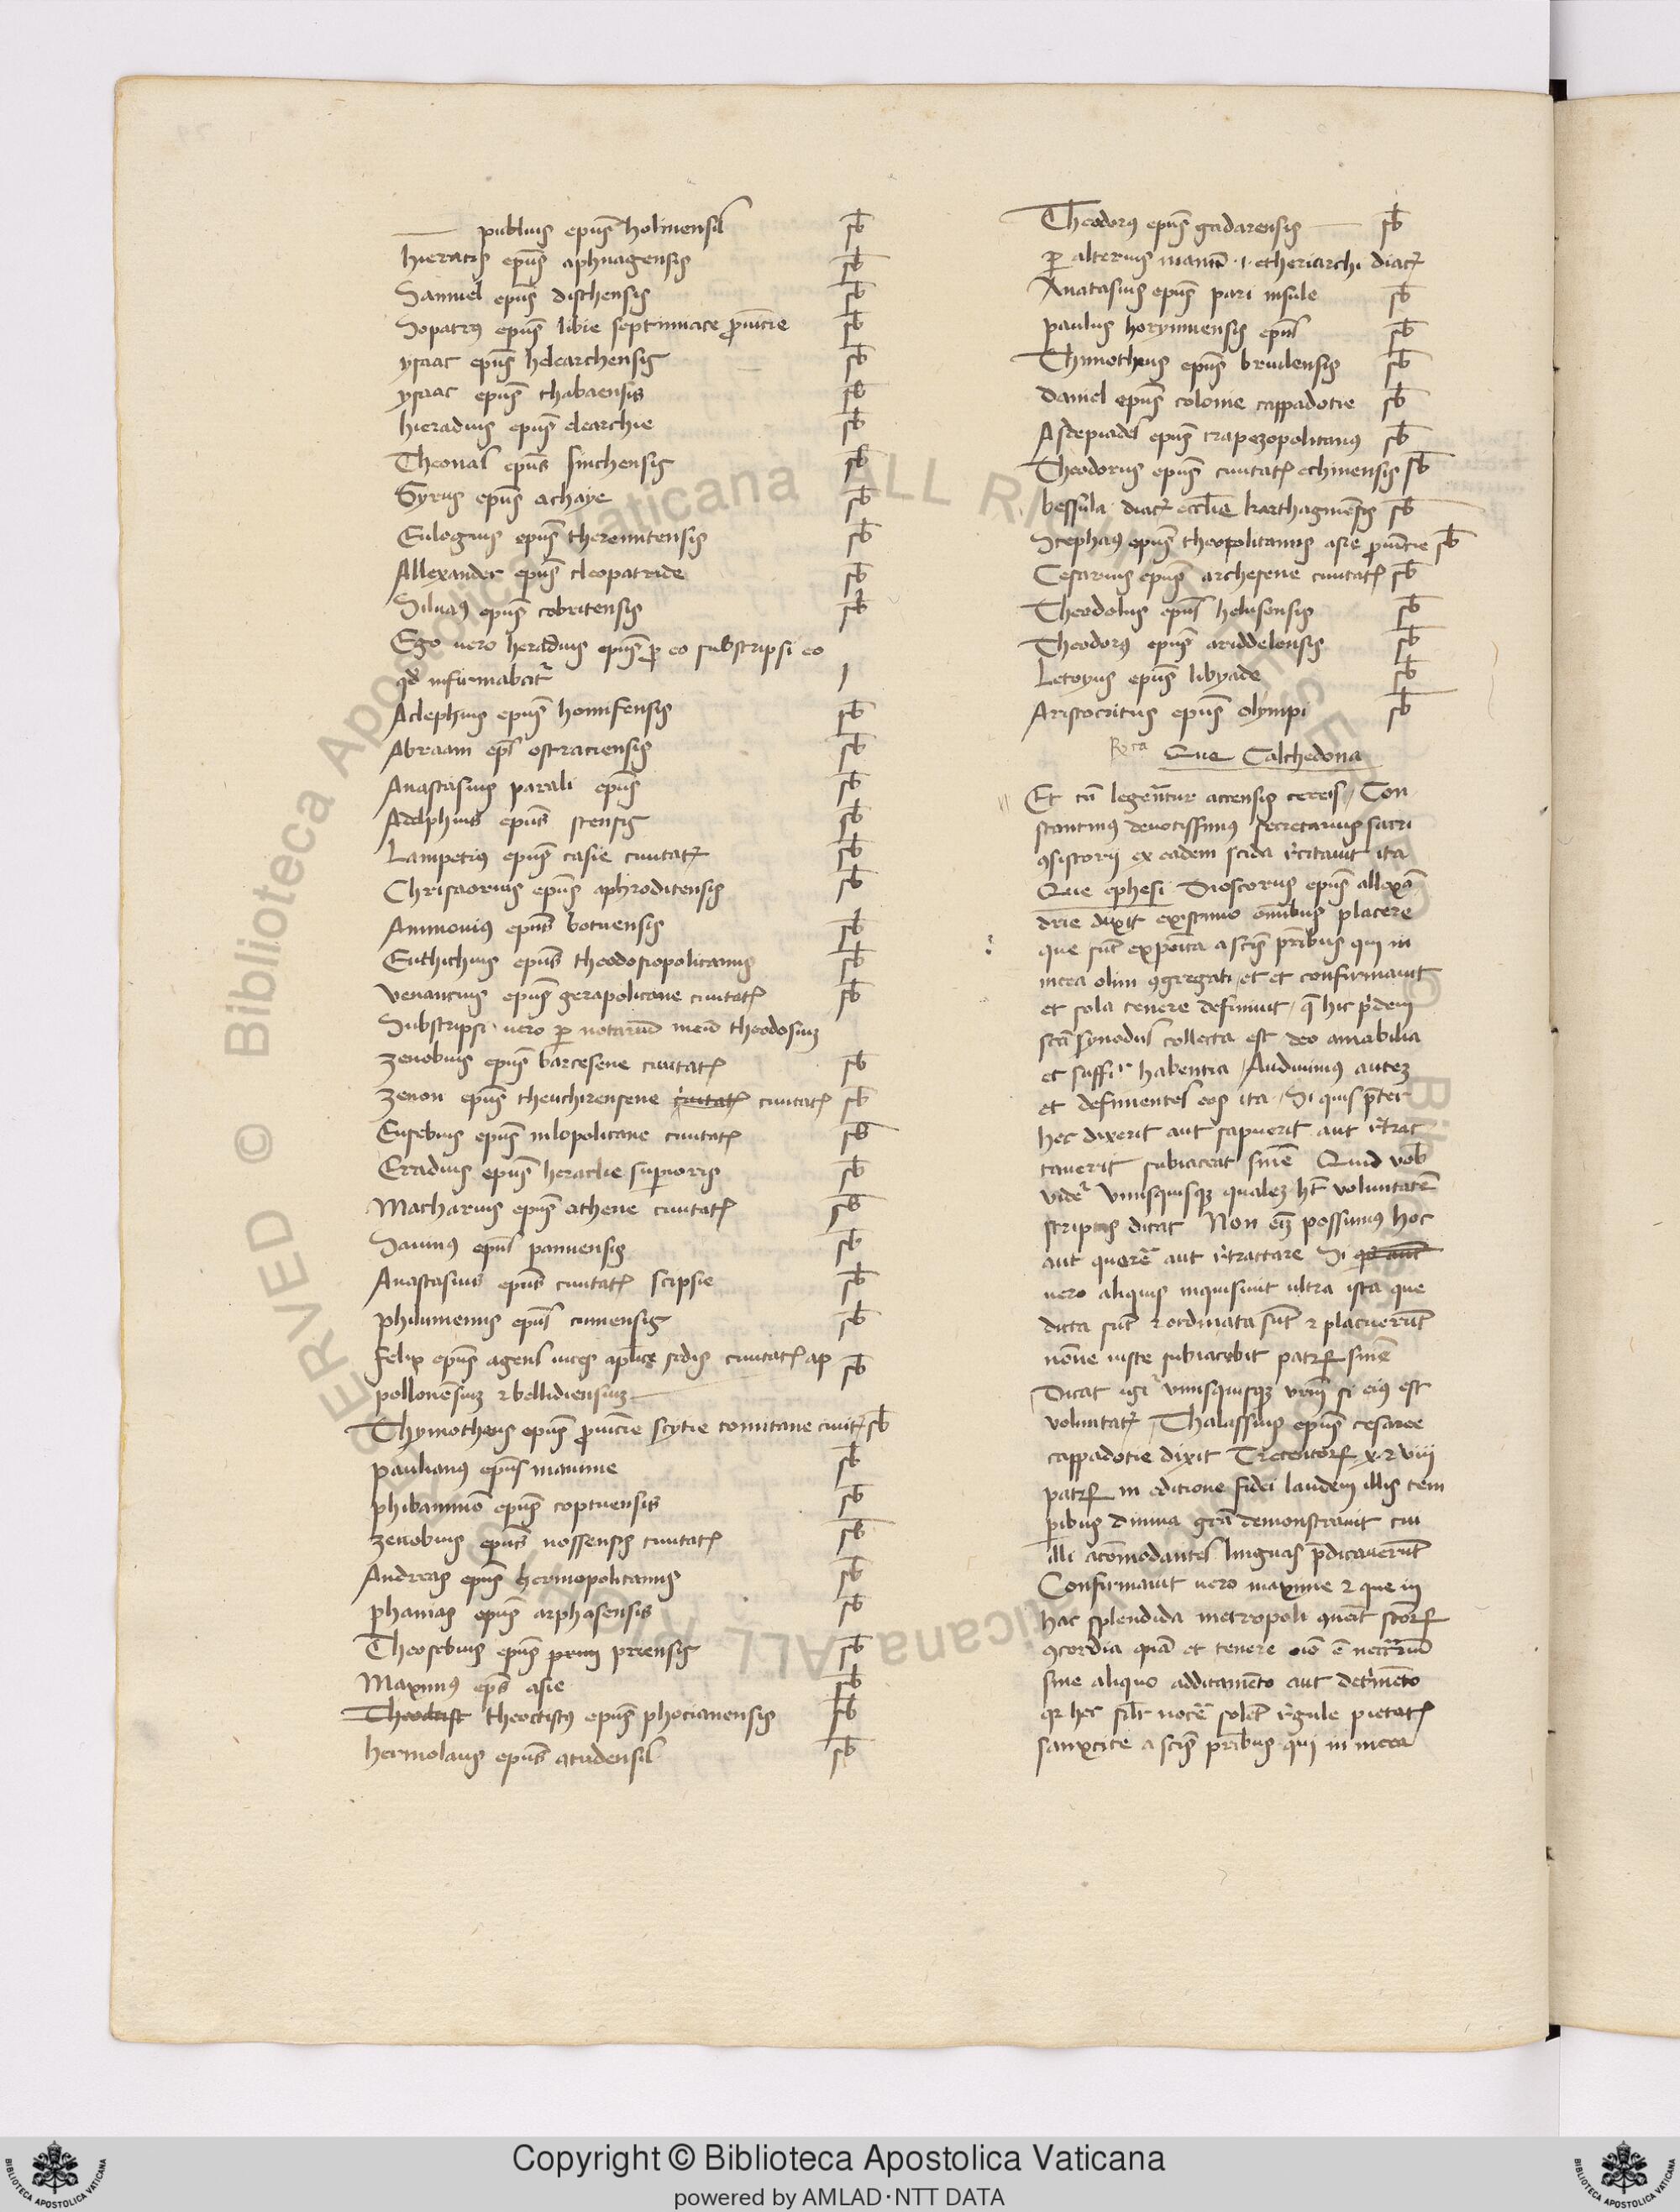 publius epus holmensis sb
hieracis epus aphnagensis sb
Samuel epus disthensis sb
Sopatrus epus libie septimiace prouincie sb
ysaac epus helearchensis sb
ysaac epus thabaensis sb
hieradius epus elearchie sb
Theonas epus sinchensis sb
Syrus epus achaye sb
Eulogius epus therenutensis sb
Allexander epus cleopatride sb
Siluanus epus cobritensis sb
Ego uero heradius epus pro eo subscripsi eo
qd infirmabatur
Aclephius epus honnifensis sb
Abraam eps ostraciensis sb
Anastasius parali epus sb
Adelphius epus stensis sb
Lampetius epus casie ciuitatis sb
Chrisaorius epus aphroditensis sb
Ammonius epus botuensis sb
Euthichius epus theodosiopolitanus sb
venancius epus gerapolitane ciuitatis sb
Subscripsi uero per notarium meum theodosium
zenobius epus barcesene ciuitatis sb
zenon epus theuchirensene ciuitatis ciuitatis sb
Eusebius epus nilopolitane ciuitatis sb
Eradius epus heraclie superioris sb
Macharius epus athene ciuitatis sb
Sauinus epus pannensis sb
Anastasius epus ciuitatis scipsie sb
philumenus epus cinnensis sb
felix epus agens uices aplice sedis ciuitatis ap
pollonensium et bellidiensium sb
Thymotheus epus prouincie scytie tomitane ciuit sb
paulianus epus maiume sb
phibammon epus coptuensis sb
zenobius epus nossensis ciuitatis sb
Andreas epus hermopolitanus sb
phanias epus arphasensis sb
Theosebius epus prim priensis sb
Maximus eps asie sb
Theoctist theoctistus epus phocianensis sb
hermolaus epus atudensis sb
Theodorus epus gadarensis sb
per alterius manum .i. etheriarchi diac
Anatasius epus pari insule sb
paulus horymnensis epus sb
Thimotheus epus briulensis sb
Daniel epus colonie cappadotie sb
Asclepiades epus trapezopolitanus sb
Theodorus epus ciuitatis echinensis sb
bessula diac ecclie karthaginensis sb
Stephanus epus theopolitanus asie prouincie sb
Cesarius epus archesene ciuitatis sb
Theodolus epus helusensis sb
Theodorus epus ariddelensis sb
Letoyus epus libyade sb
Aristocritus epus olympi sb
Que Calchedona
Et cum legerentur accensis cereis / Con
stantinus deuotissimus secretarius sacri
consistorii ex eadem scida recitauit ita
Que ephesi Dioscorus epus allexan
drie dixit existimo omnibus placere
que sunt exposita a sctis patribus qui in
nicea olim congregati et et confirmauit
et sola tenere definiuit / que hic pridem
sca synodus collecta est deo amabilia
et suffi habentia / Audiuimus autem
et definientes eos ita Si quis preter
hec dixerit aut sapuerit aut retrac
tauerit subiaceat sinie Quid vob
videtur Vnusquisque qualem ht voluntatem
scriptis dicat Non enim possumus hoc
aut querere aut retractare Si qd aut
uero aliquis inquisiuit ultra ista que
dicta sunt et ordinata sunt et placuerunt
nonne iuste subiacebit patrum sinie
Dicat igitur vnusquisque vrum si eius est
voluntatis Thalassius epus cesaree
cappadotie dixit Trecentorum x et viii
patrum in editione fidei laudem illis tem
poribus diuina gra demonstrauit cui
illi acomodantes linguas predicauerunt
Confirmauit uero maxime et que in
hac splendida metropoli quenit sctorum
concordia quam et tenere oio e necrium
sine aliquo additamento aut detrimento
qr hec silr nocere solent regule pietatis
sanxcite a sctis patribus qui in nicea
Copyright © Biblioteca Apostolica Vaticana
powered by AMLAD·NTT DATA